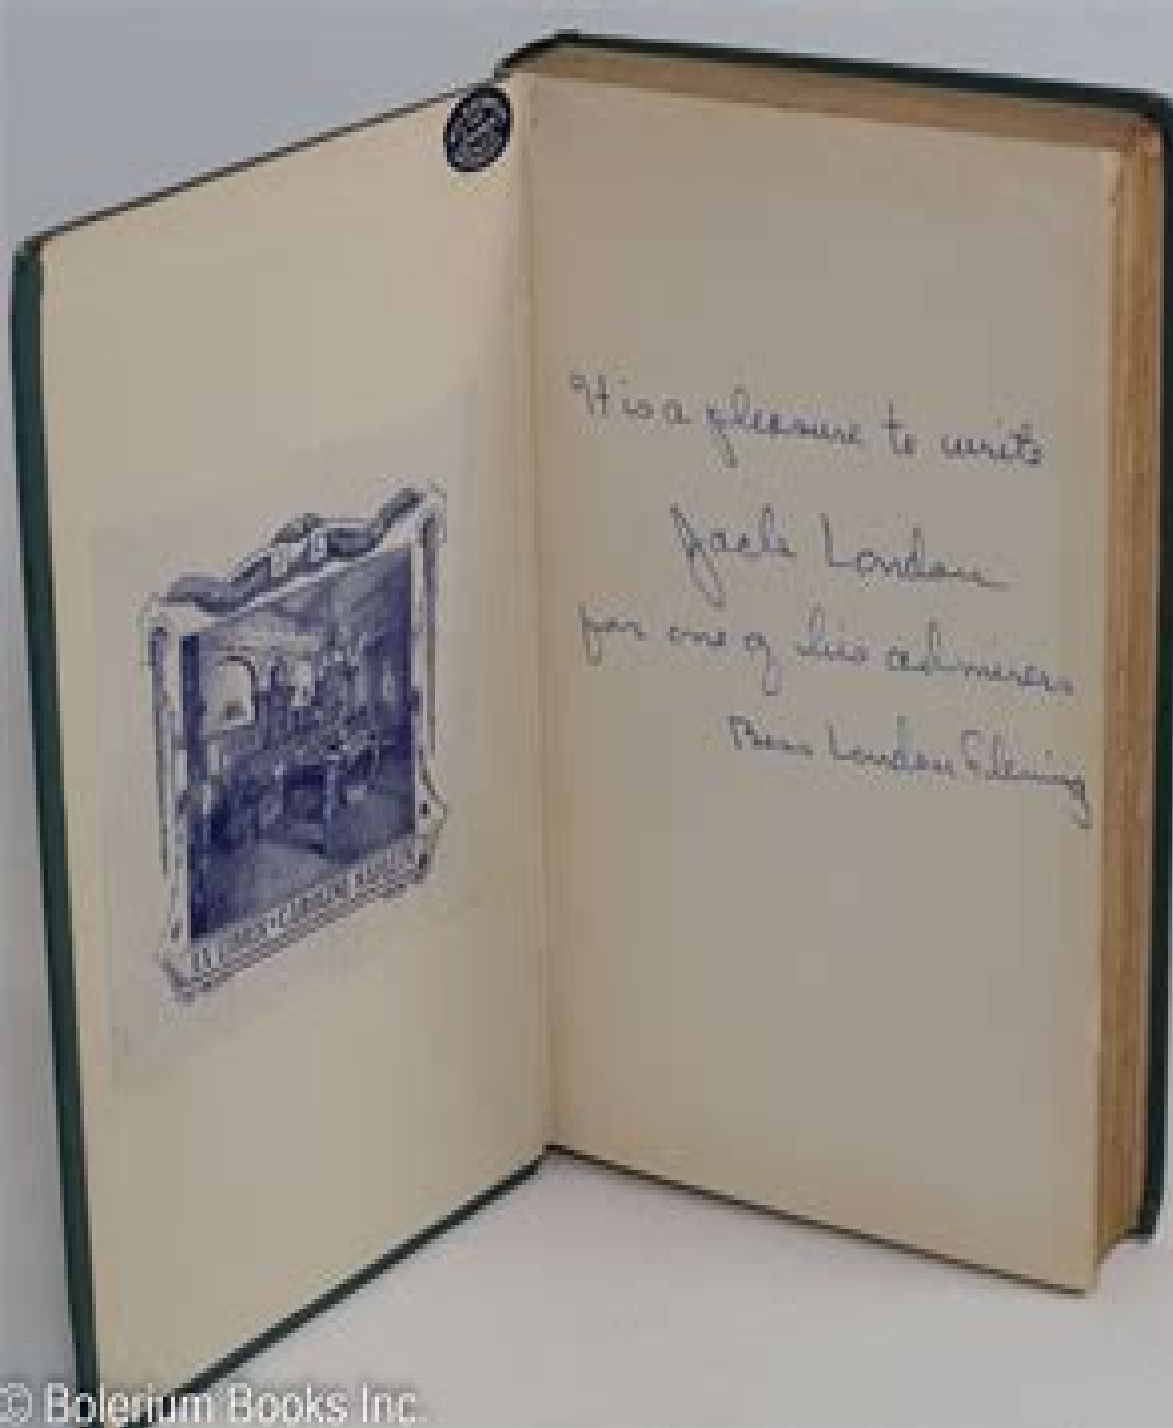 It is a pleasure to write
Jack London
for one of his admirers
Bess London Fleming
EX LIBRIS
© Bolerium Books Inc.